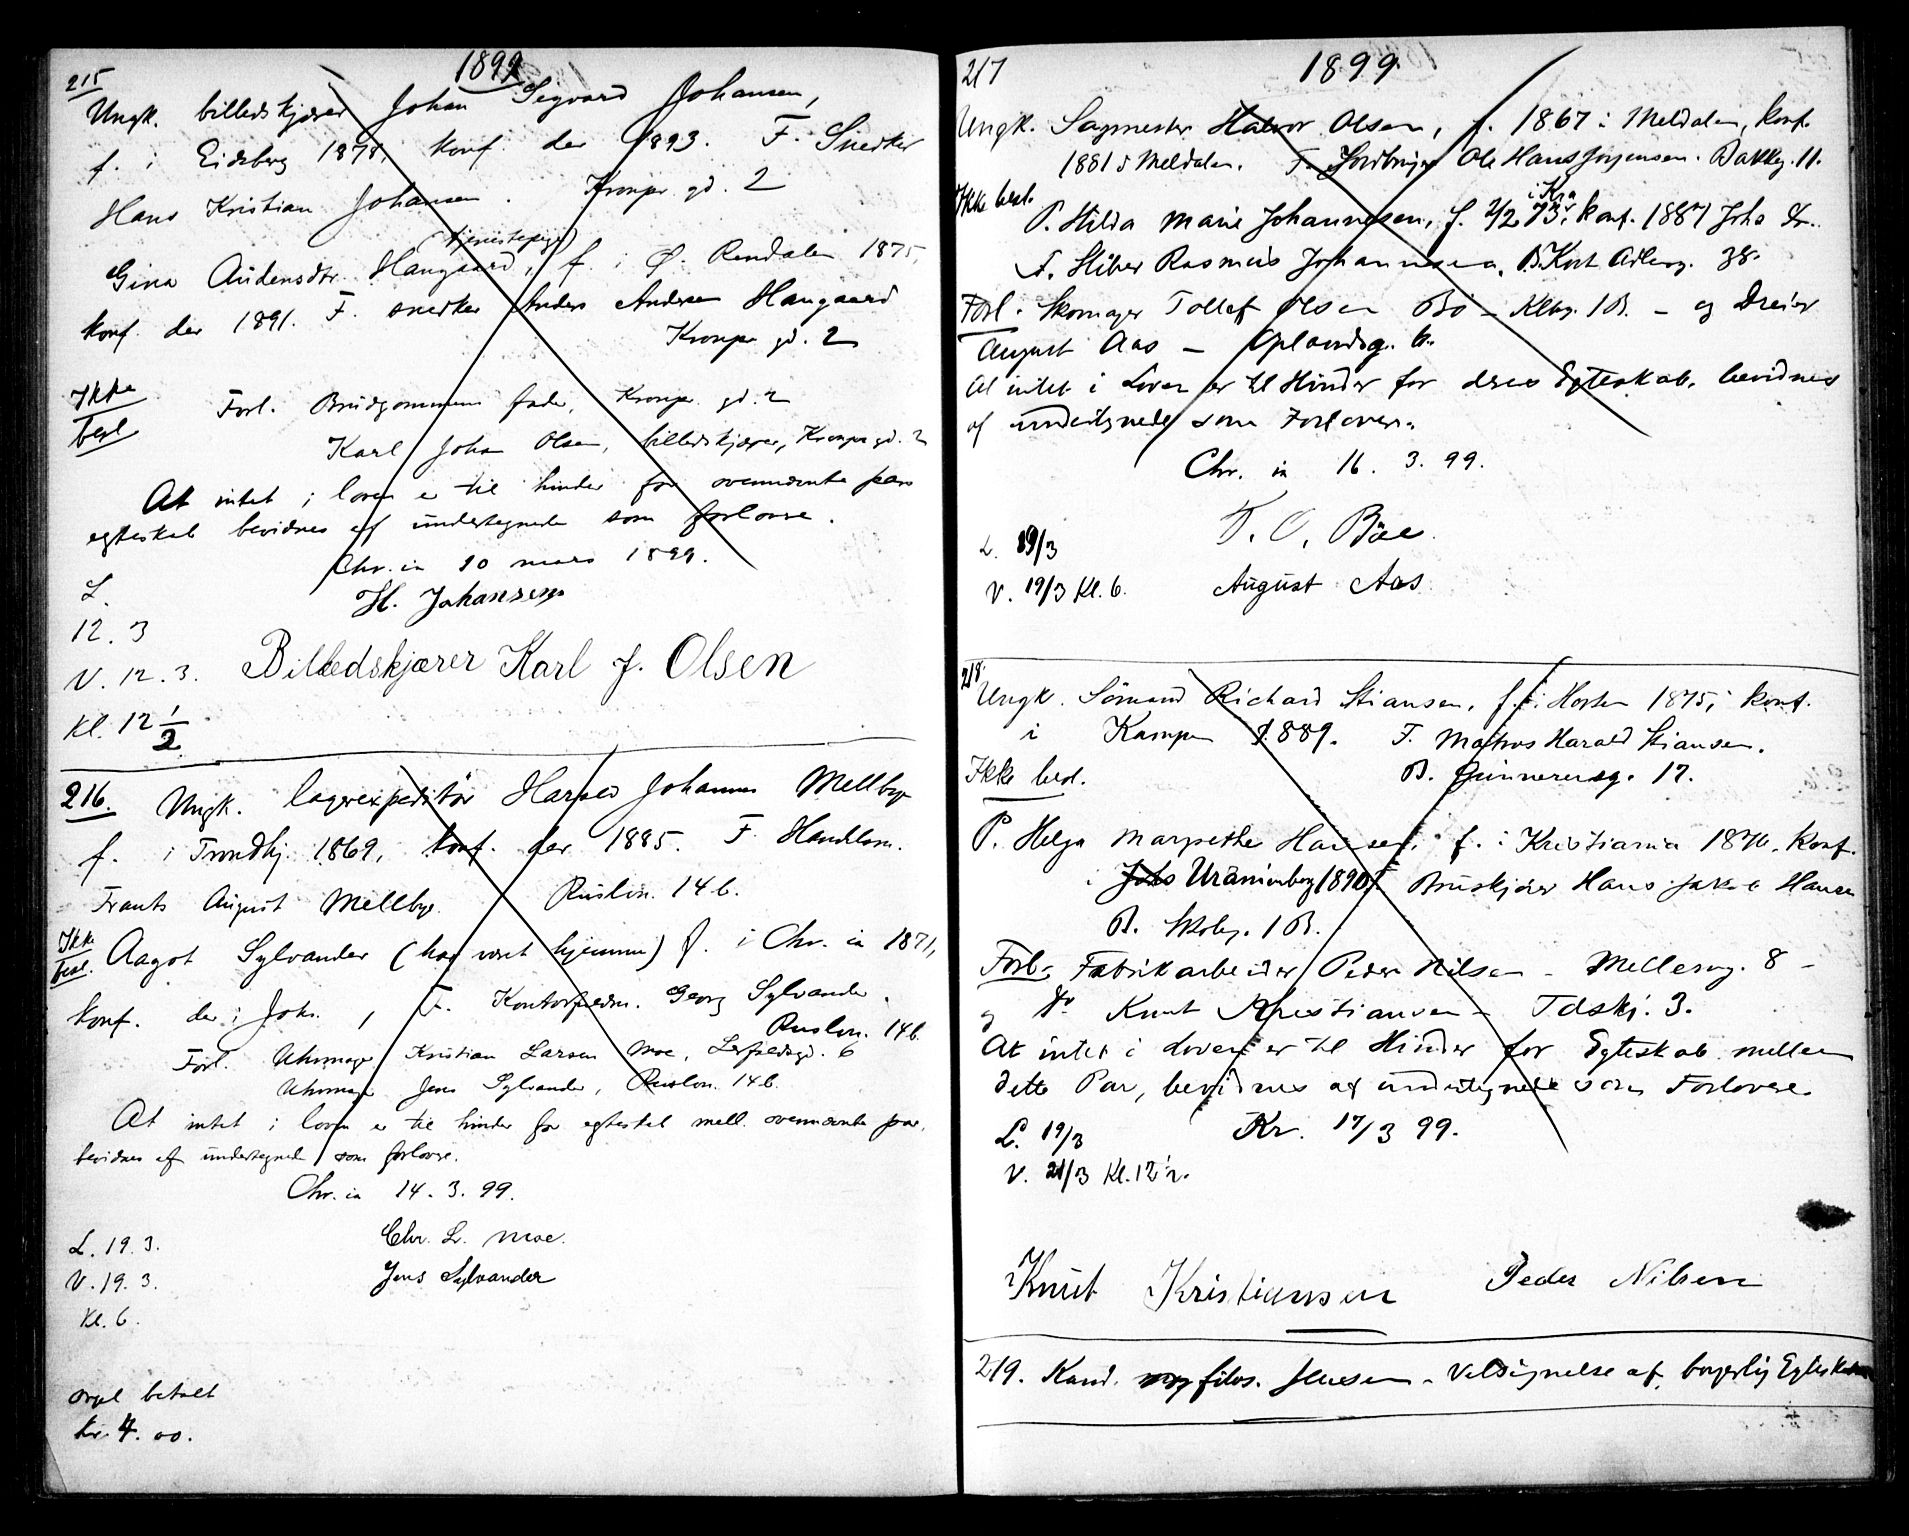 215
1899
Ungk. billedskjærer Johan Sigvard Johansen,
f. i Eidsberg 1878, konf. der 1893. F. Snedker
Hans Kristian Johansen. Kronpr. gd. 2
(tjenestepige)
Gina Audensdtr. Haugaard, f. i Ø. Rendalen 1875,
konf. der 1891. F. snedker Anders Andersen Haugaard
Kronpr. gd. 2
Ikke
besl.
Forl. Brudgommens fader, Kronpr. gd. 2
Karl Johan Olsen, billedskjærer, Kronpr. gd. 2
At intet i loven er til hinder for ovennævnte pars
egteskab bevidnes af undertegnede som forlovere.
Chr.ia 10 mars 1899.
H. Johansen
L.
12. 3
V. 12. 3.
Kl. 12 1/2
Billedskjærer Karl J. Olsen
216. Ungk. lagerexpeditør Harald Johannes Mellbye
f. i Trondhj. 1869, konf. der 1885. F. Handelsm.
Frants August Mellbye. Rusløk. 14 b.
Ikke
besl.
Aagot Sylvander (har vært hjemme) f. i Chr.ia 1871,
konf. der i Joh., F. Kontorfuldm. Georg Sylvander.
Rusløk. 14 b.
Forl. Uhrmager Kristian Larsen Moe, 6
Uhrmager Jens Sylvander, Rusløk. 14 b.
At intet i loven er til hinder for egteskab mell. ovennævnte par,
bevidnes af undertegnede som forlovere.
Chr.ia 14. 3. 99.
L. 19. 3.
V. 19. 3.
Kl. 6.
Chr. L. Moe.
Jens Sylvander
Orgel betalt
kr. 4. 00.
217
1899
Ungk. Sagmester Halvor Olsen, f. 1867 i Meldalen, konf.
1881 i Meldalen. F. Jordbruger Ole Hans Jørgensen. Bakkeg. 11.
Ikke besl.
i Kra
P. Hilda Marie Johannesen, f. 2/2 73, konf. 1887 Joha K.
F. Stiber Rasmus Johannesen, B. Kort Adlersg. 38.
Forl. Skomager Tollef Olsen Bö – Klbg. 1 B. – og Dreier
August Aas – Oplandsg. 6.
At intet i Loven er til Hinder for deres Egteskab, bevidnes
af undertegnede som Forlovere.
Chr. ia 16. 3. 99.
T. O. Böe.
L. 19/3
V. 19/3 Kl. 6.
August Aas
218.
Ungk. Sömand Richard Stiansen, f. i Horten 1875, konf.
i Kampen 1889. F. Matros Harald Stiansen.
Ikke besl.
B. Gunnerusg. 17.
P. Helga Margrethe Hansen, f. i Kristiania 1876. konf.
i Johs Uranienborg 1890. F. Buskjører Hans Jakob Hansen
B. Skobg. 1 B.
Forl. Fabrikarbeider Peder Nilsen – Møllerveg. 8 –
og do Knut Kristiansen – Toldskj. 3.
At intet i Loven er til Hinder for Egteskab mellem
dette Par, bevidnes af undertegnede som Forlovere.
L. 19/3
Kr. 17/3 99.
V. 21/3 Kl. 12 1/2.
Knut Kristiansen Peder Nilsen
219. Kand. filos. Jensen – Velsignelse af borgerlig Egteskab